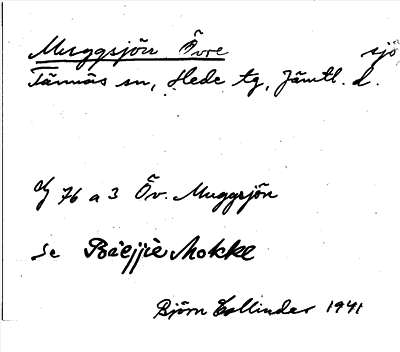 Muggsjön Övre sjö
Tännäs sn, Hede tg, Jämtl. d.
76 a 3 Öv. Muggsjön
se Bàejjie Mokke
Björn Collinder 1941